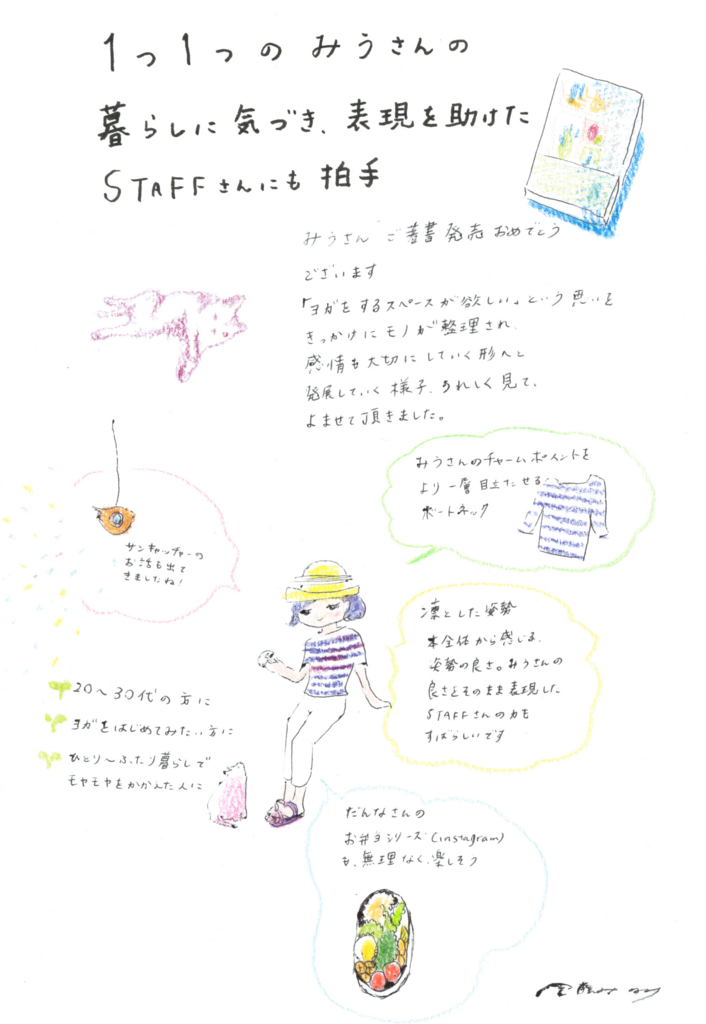 1つ1つのみうさんの
暮らしに気づき、表現を助けた
STAFFさんにも拍手
みうさん ご著書発売おめでとう
ございます
「ヨガをするスペースが欲しい」という思いを
きっかけにモノが整理され、
感情も大切にしていく形へと
発展していく様子、うれしく見て、
よませて頂きました。
みうさんのチャームポイントを
より一層目立たせる
ボートネック
サンキャッチャーの
お話も出て
きましたね!
凛とした姿勢
本全体から感じる、
姿勢の良さ。みうさんの
良さをそのまま表現した
STAFFさんの力も
すばらしいです
20〜30代の方に
ヨガをはじめてみたい方に
ひとり〜ふたり暮らしで
モヤモヤをかかえた人に
だんなさんの
お弁当シリーズ(instagram)
も、無理なく、楽しそう